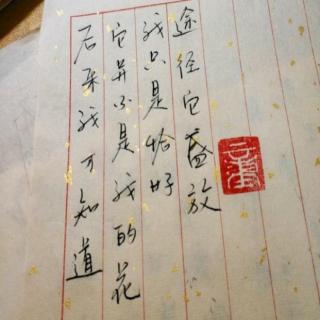 后来我才知道
它并不是我的花
我只是恰好
途径它盛放